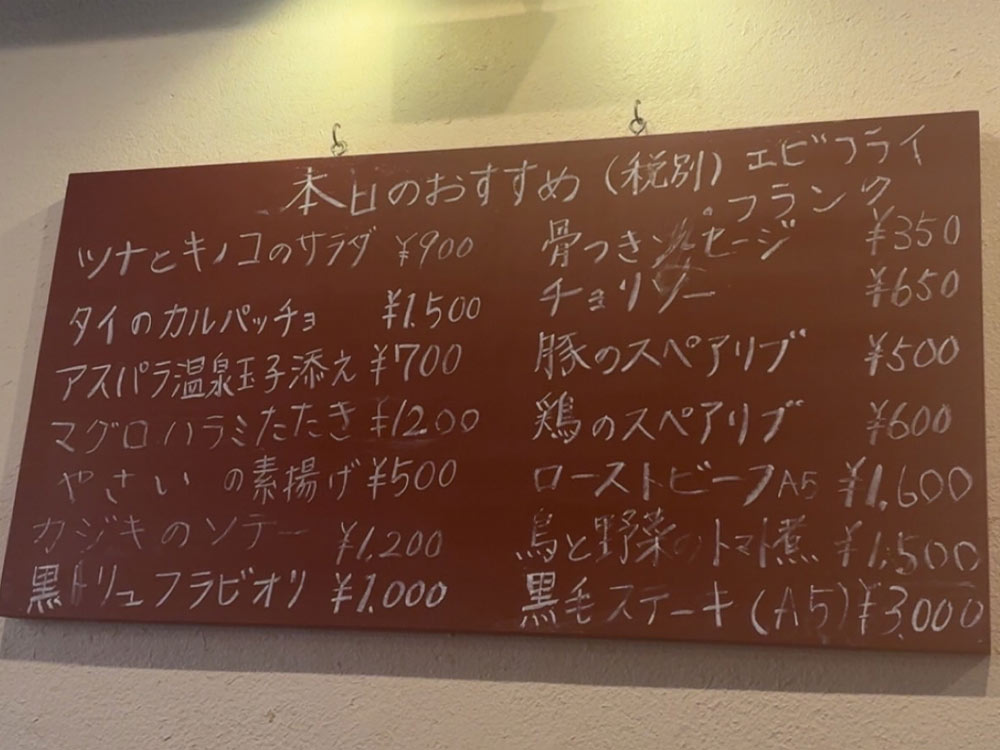 本日のおすすめ (税別) エビフライ
・フランク
ツナとキノコのサラダ ¥900
タイのカルパッチョ ¥1.500
アスパラ温泉玉子添え ¥700
マグロハラミたたき ¥1200
やさい の素揚げ ¥500
カジキのソテー ¥1,200
黒トリュフラビオリ ¥1.000
骨つきソーセージ ¥350
チョリソー ¥650
豚のスペアリブ ¥500
鶏のスペアリブ ¥600
ローストビーフA5 ¥1,600
鳥と野菜のトマト煮 ¥1,500
黒毛ステーキ(A5) ¥3.000